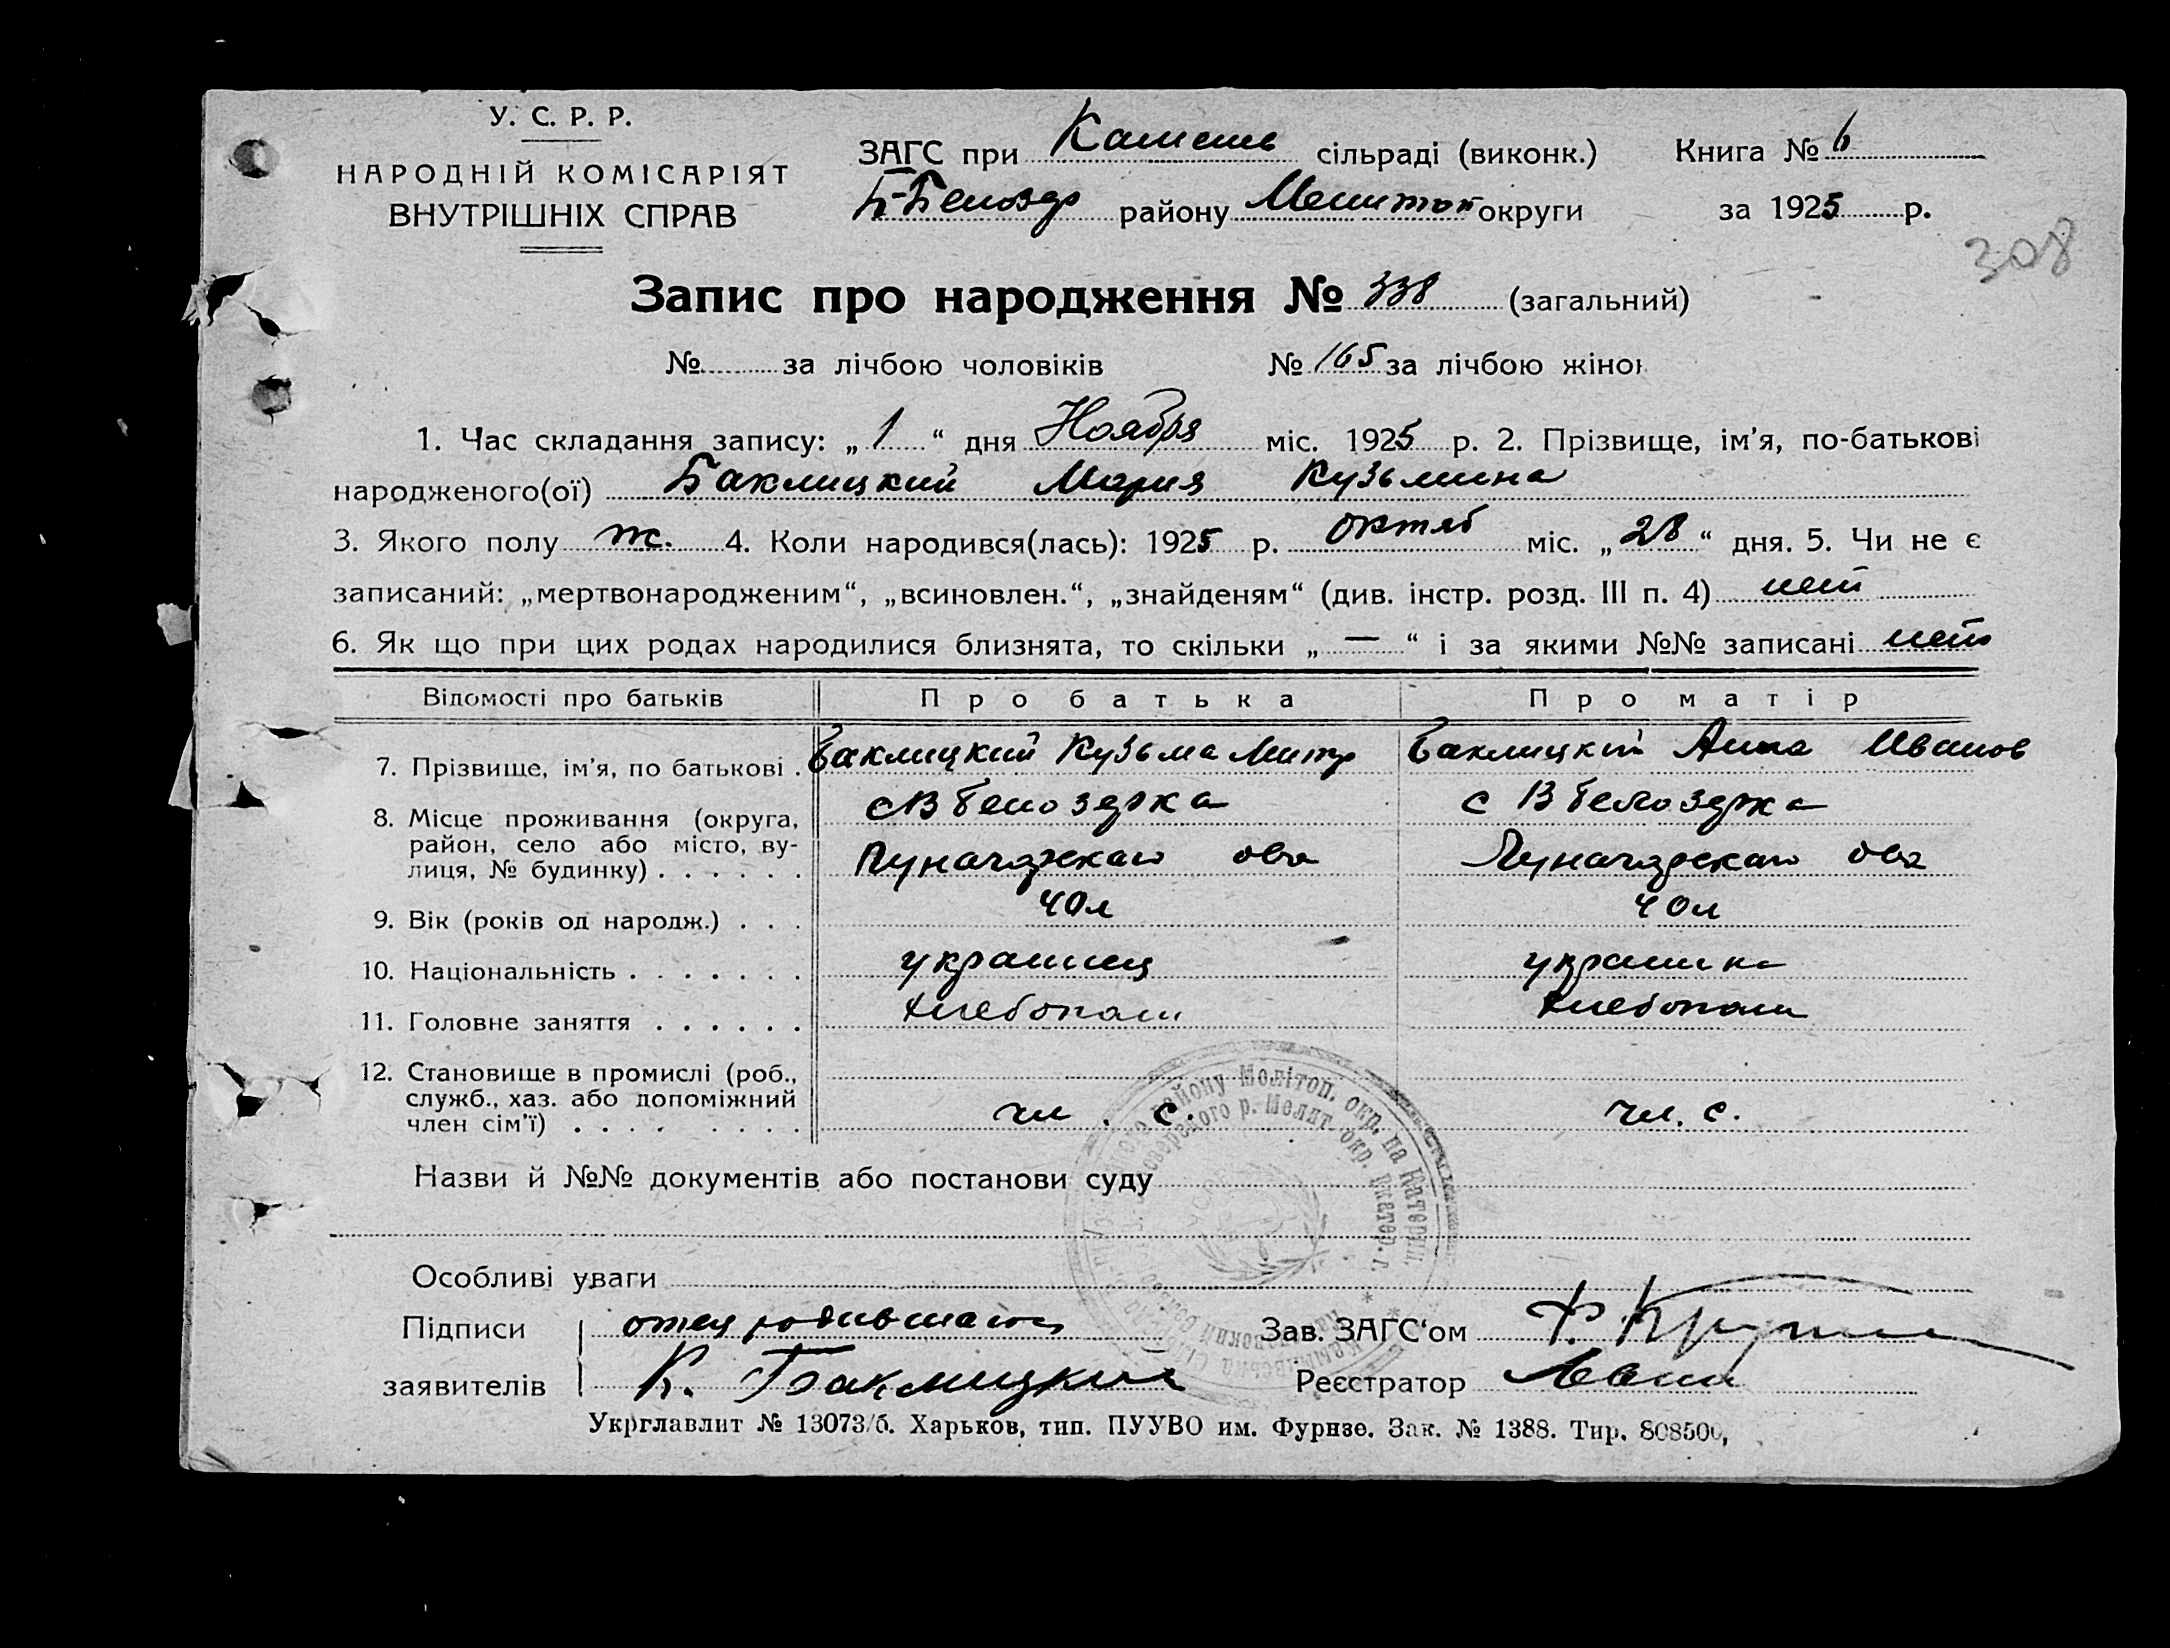 У. С. Р. Р.
НАРОДНІЙ КОМІСАРІЯТ
ВНУТРІШНІХ СПРАВ
ЗАГС при Каменев сільраді (виконк.) Книга № 6
Б-Белозер району Мелитоп округи за 1925 р.
308
Запис про народження № 338 (загальний)
№ за лічбою чоловіків № 165 за лічбою жінок
1. Час складання запису: „ 1 “ дня Ноября міс. 1925 р. 2. Прізвище, ім’я, по-батькові
народженого(ої) Баклицкий Мария Кузьмина
3. Якого полу ж. 4. Коли народився(лась): 1925 р. октяб міс. „ 28 “ дня. 5. Чи не є
записаний: „мертвонародженим“, „всиновлен.“, „знайденям“ (див. інстр. розд. III п. 4) нет
6. Як що при цих родах народилися близнята, то скільки „ — “ і за якими №№ записані нет
Відомості про батьків Про батька Про матір
7. Прізвище, ім’я, по батькові . Баклицкий Кузьма Митр Баклицкий Анна Иванов
8. Місце проживання (округа, с В Белозерка с В Белозерка
район, село або місто, ву-
лиця, № будинку) . . . . . . Луначарскаго Луначарскаго
9. Вік (років од народж.) . . . 40 л 40 л
10. Національність . . . . . . . украинец украинка
11. Головне заняття . . . . . . хлебопаш хлебопаш
12. Становище в промислі (роб.,
служб., хаз. або допоміжний
член сім’ї) . . . . . . . . чл. с. чл. с.
Назви й №№ документів або постанови суду
Особливі уваги
Підписи отец родившагося Зав. ЗАГС‘ом
заявителів К. Баклицкий Реєстратор
Укрглавлит № 13073/б. Харьков, тип. ПУУВО им. Фурнзе. Зак. № 1388. Тир. 808500,
району Мелітоп. окр. на Катерин.
р. Мелит. окр. Екатер. г.